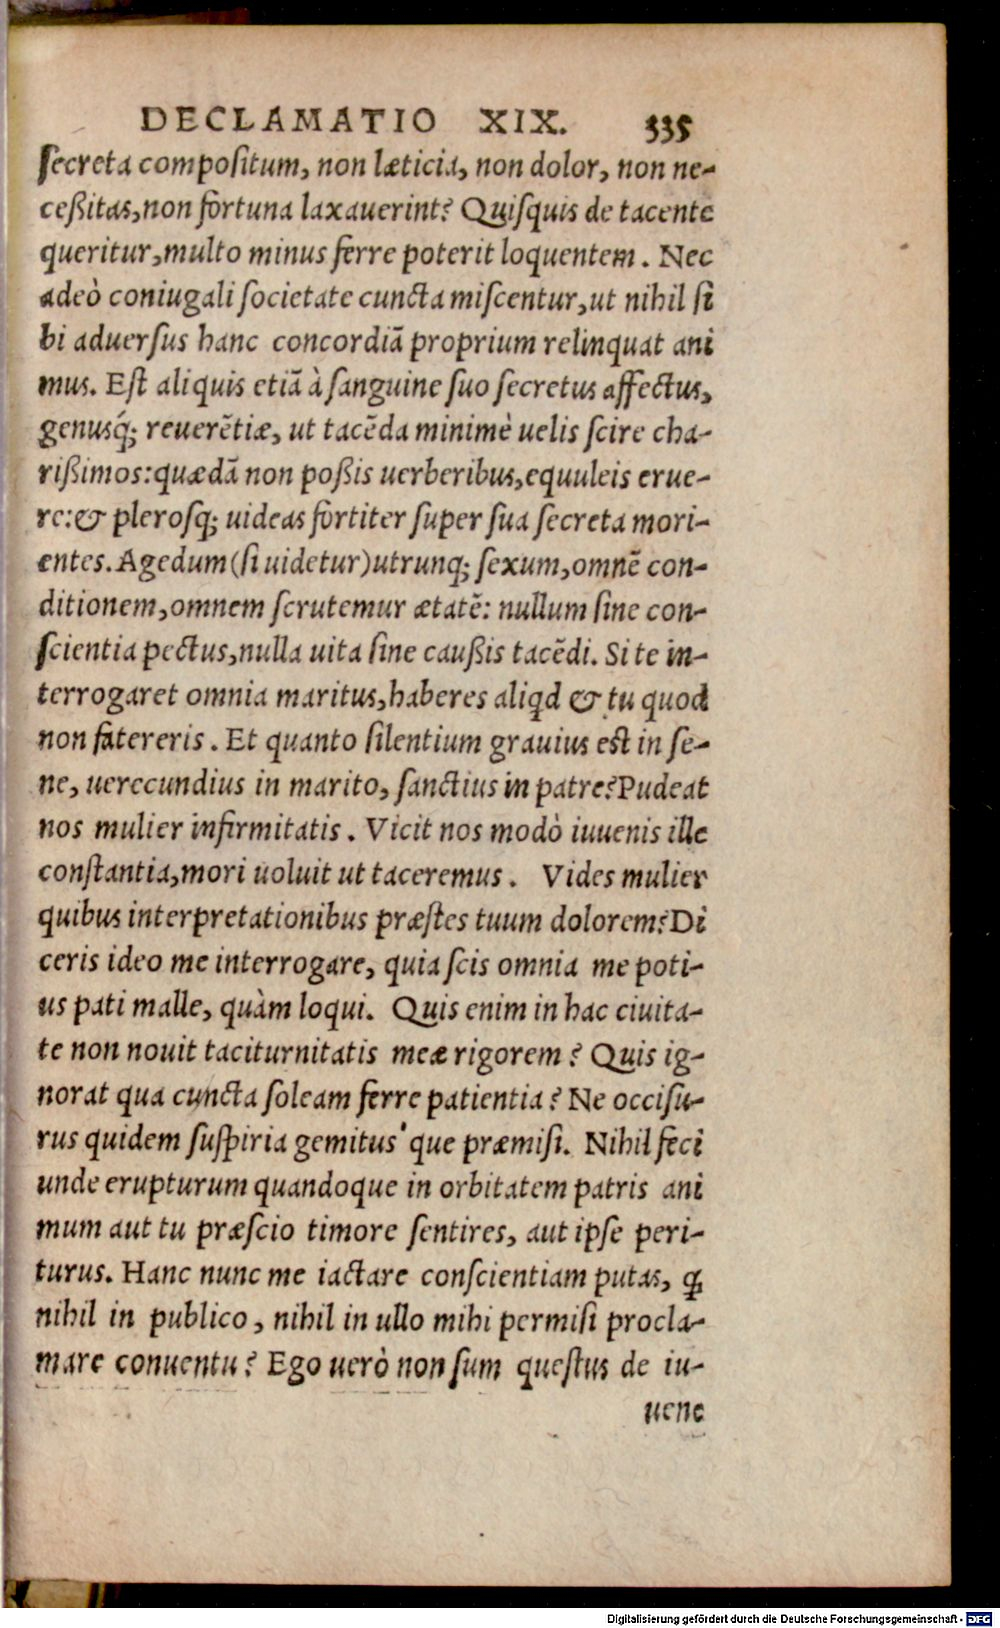 DECLAMATIO XIX. 335
ſecreta compoſitum, non læticia, non dolor, non ne-
ceßitas, non fortuna laxauerint? Quiſquis de tacente
queritur, multo minus ferre poterit loquentem. Nec
adeò coniugali ſocietate cuncta miſcentur, ut nihil ſi
bi aduerſus hanc concordiã proprium relinquat ani
mus. Eſt aliquis etiã à ſanguine ſuo ſecretus affectus,
genusq́; reuerẽtiæ, ut tacẽda minimè uelis ſcire cha-
rißimos: quædã non poßis uerberibus, equuleis erue-
re: & pleroſq; uideas fortiter ſuper ſua ſecreta mori-
entes. Agedum (ſi uidetur) utrunq; ſexum, omnẽ con-
ditionem, omnem ſcrutemur ætatẽ: nullum ſine con-
ſcientia pectus, nulla uita ſine caußis tacẽdi. Si te in-
terrogaret omnia maritus, haberes aliqd & tu quod
non fatereris. Et quanto ſilentium grauius eſt in ſe-
ne, uerecundius in marito, ſanctius in patre? Pudeat
nos mulier infirmitatis. Vicit nos modò iuuenis ille
conſtantia, mori uoluit ut taceremus. Vides mulier
quibus interpretationibus præſtes tuum dolorem? Di
ceris ideo me interrogare, quia ſcis omnia me poti-
us pati malle, quàm loqui. Quis enim in hac ciuita-
te non nouit taciturnitatis meæ rigorem? Quis ig-
norat qua cuncta ſoleam ferre patientia? Ne occiſu-
rus quidem ſuſpiria gemitus'que præmiſi. Nihil feci
unde erupturum quandoque in orbitatem patris ani
mum aut tu præſcio timore ſentires, aut ipſe peri-
turus. Hanc nunc me iactare conſcientiam putas, ꝙ
nihil in publico, nihil in ullo mihi permiſi procla-
mare conuentu? Ego uerò non ſum queſtus de iu-
uene
Digitalisierung gefördert durch die Deutsche Forschungsgemeinschaft - DFG